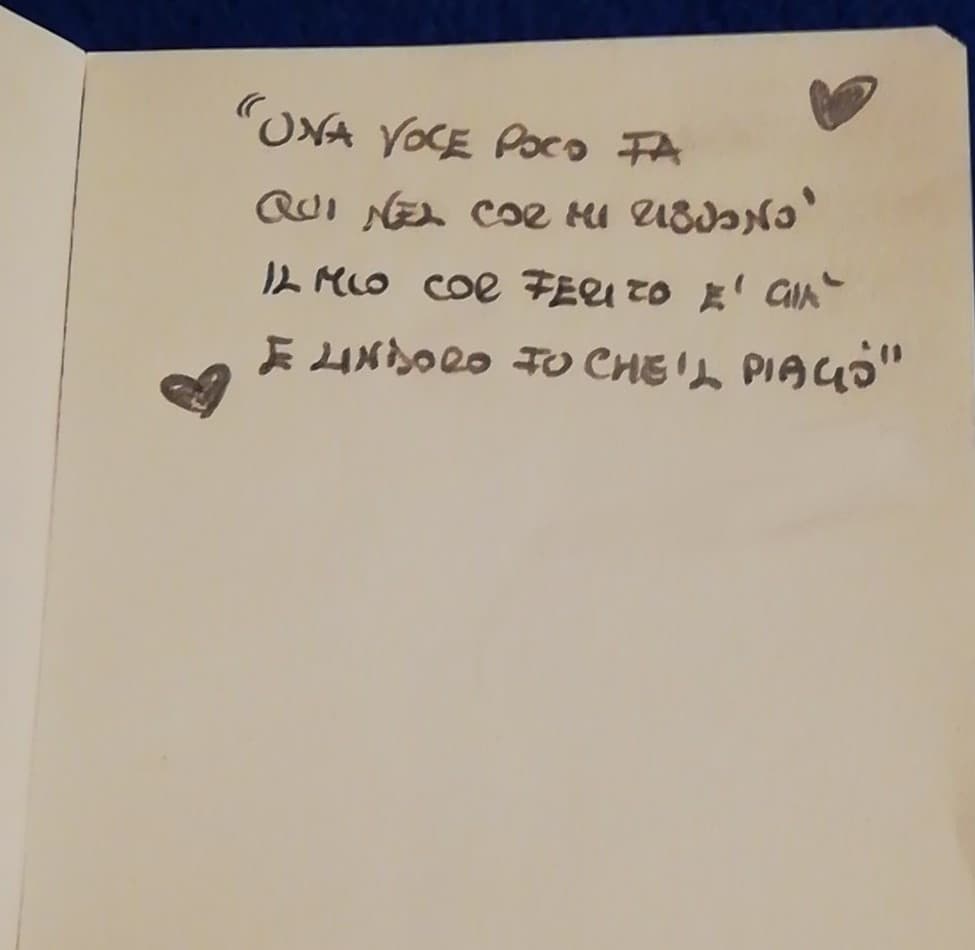 "UNA VOCE POCO FA
QUI NEL COR MI RISUONO'
IL MIO COR FERITO E' GIA'
E LINDORO FU CHE'L PIAGÒ"